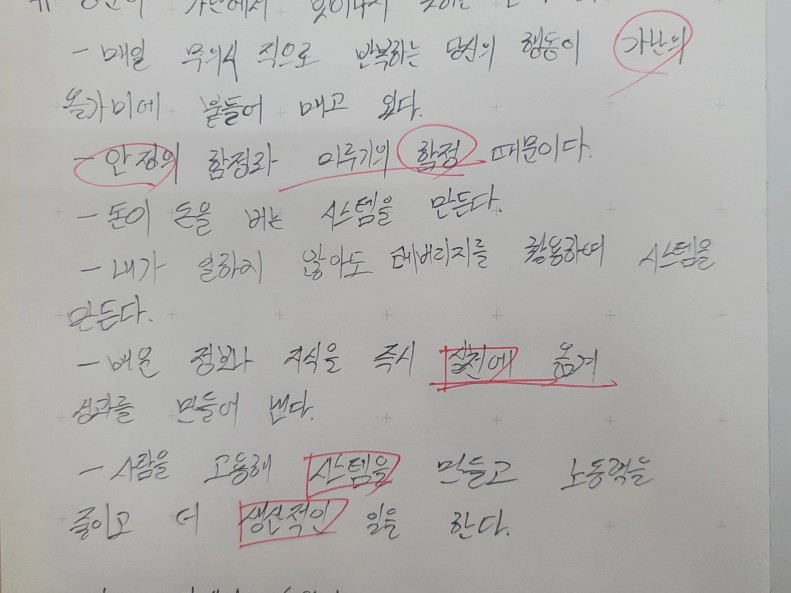 당신이 가난에서 벗어나지 못하는
- 매일 무의식 적으로 반복하는 당신의 행동이 가난의
올가미에 붙들어 매고 있다.
- 안정의 함정과 미루기의 함정 때문이다.
- 돈이 돈을 버는 시스템을 만든다.
- 내가 일하지 않아도 레버리지를 활용하여 시스템을
만든다.
- 배운 정보와 지식을 즉시 실천에 옮겨
성과를 만들어 낸다.
- 사람을 고용해 시스템을 만들고 노동력을
줄이고 더 생산적인 일을 한다.